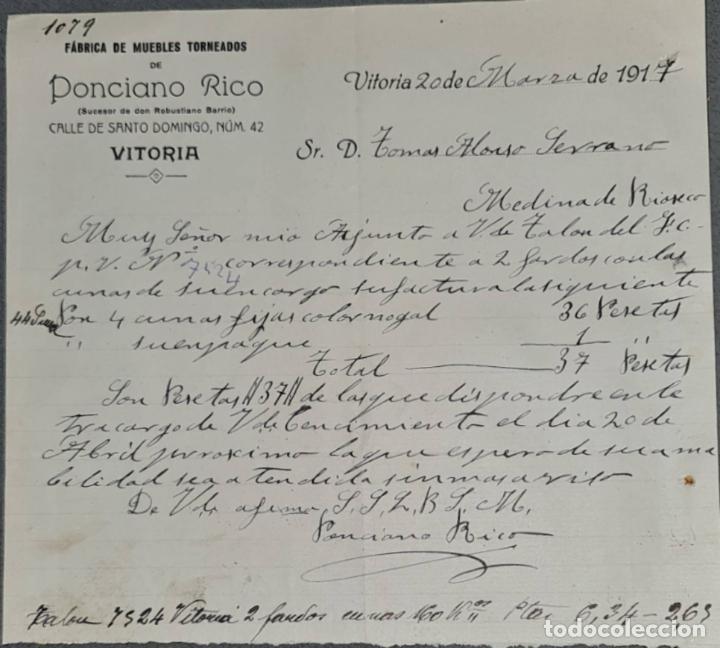 1079
FÁBRICA DE MUEBLES TORNEADOS
DE
Ponciano Rico
(Sucesor de don Robustiano Barrio)
CALLE DE SANTO DOMINGO, NÚM. 42
VITORIA
Vitoria 20 de Marzo de 1917
Sr. D. Tomas Alonso Serrano
Medina de Rioseco
Muy Señor mio Agunto a V. de Talon del F. c.
p. V. Nº 7524 correspondiente a 2 fardos con las
cunas de su encargo su factura la siguiente
Por 4 cunas fijas color nogal 36 Pesetas
" su enpaque 1 "
Total 37 Pesetas
Son Pesetas #37# de las que dispondre en le
tra cargo de V de Bencimiento el dia 20 de
Abril procsimo la que espero de su ama
bilidad sea atendida sin mas aviso
De V de afsmo. S. S. Q. B. S. M.
Ponciano Rico
Talon 7524 Vitoria 2 fardos cunas 160 Kos Ptas 6,34 - 2,63
todocoleccion